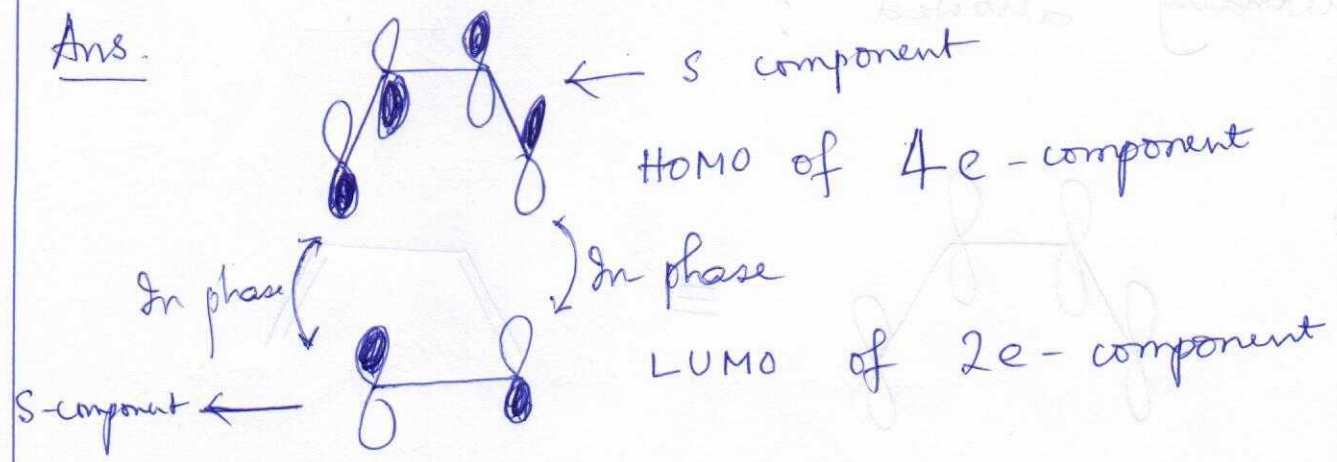 Ans.
← s component
HOMO of 4e-component
In phase
In phase
LUMO of 2e-component
S-component ←
allowed